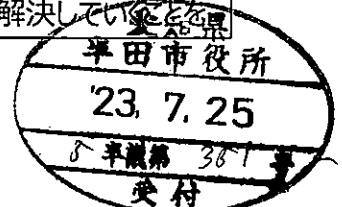 解決していくことを
愛知県
半田市役所
'23. 7. 25
5半議第 361 号
受付